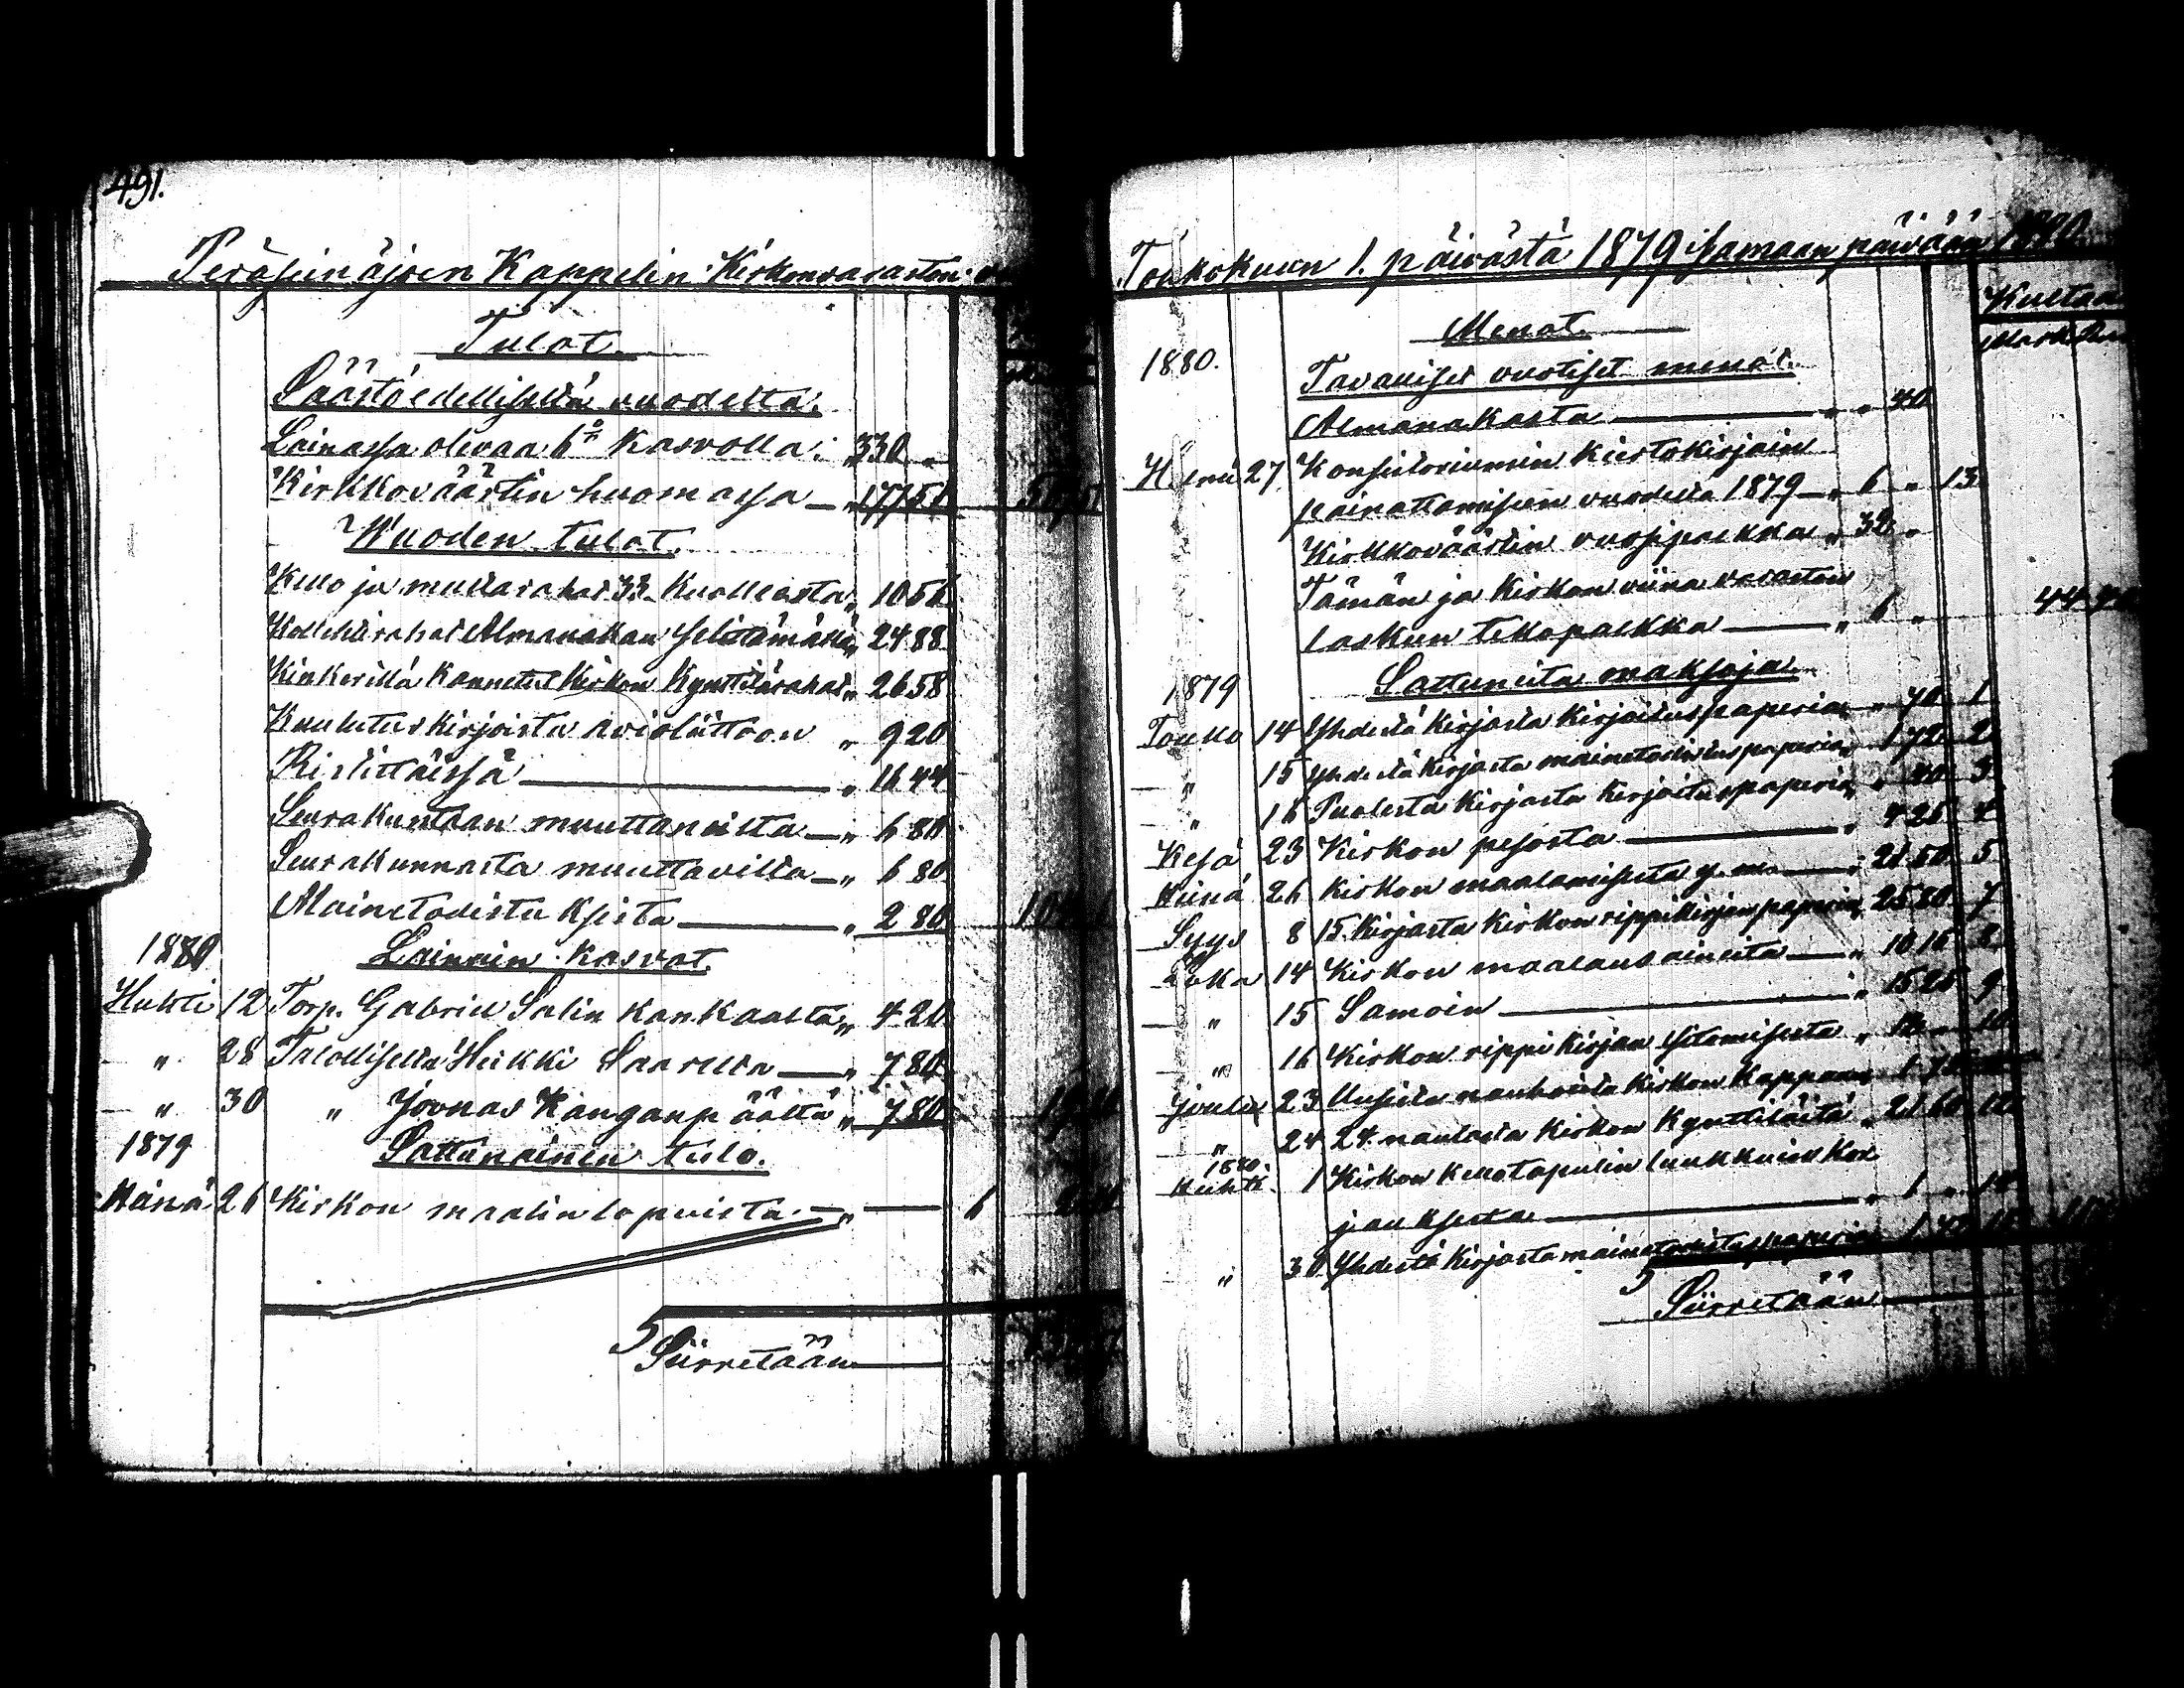 491.
Peräseinäjoen Kappelin Kirkonvaraston
Tulot.
Säästö edelliseltä vuodelta.
Lainassa olevaa 6% Kasvolla: „ 330 „
Kirkkoväärtin huomassa — „ 177 51
Wuoden tulot.
Kello ja multarahat 33 Kuolleesta „ 10 56
Kollehtirahat Almanakan selittämästä „ 24 88
Kinkerillä kannetut Kirkon Kynttilärahat „ 26 58
Kuulutuskirjoista avioliittoon „ 9 20
Ristittäissä — „ 16 44
Seurakuntaan muuttaneilta — „ 6 80
Seurakunnasta muuttavilta — „ 6 80
Mainetodistuksista — „ 2 80
1880
Lainain Kasvot.
Huhti 12 Torp. Gabriel Salin kankaalta „ 4 20
„ 28 Talolliselta Heikki Saarelta — „ 7 80
„ 30 „ Joonas Kanganpäältä „ 7 80
1879
Sattunainen tulo.
Heinä 26 Kirkon maalin lopuista — „ — 6
Siirretään —
Toukokuun 1. päivästä 1879 samaan päivään 1880.
Kultaa
Menot.
1880.
Tavalliset vuotiset menot.
Almanakasta — „ „ 40
Helmi 27 Konsistoriumin Kiertokirjain
painattamiseen vuodelta 1879 — „ 6 „ 13
Kirkkoväärtin vuosipalkka „ 32 „
Tämän ja Kirkon viina varaston
laskun tekopalkka — „ 6 „ 44
1879
Sattuneita maksoja.
Touko 14 Yhdestä Kirjasta Kirjoituspaperia „ 70 1
„ 15 Yhdestä Kirjasta mainetodistuspaperia „ 1 72 2
„ 16 Puolesta Kirjasta kirjoituspaperia „ „ 40 3
Kesä 23 Kirkon pesosta — „ 4 26 4
Heinä 26 Kirkon maalamisesta y. m. — „ 21 50 5
Syys 8 15 Kirjasta Kirkon rippikirjan paperia „ 25 80 7
Loka 14 Kirkon maalaus aineita — „ 10 16 8
„ 15 Samoin — „ 15 25 9
„ 16 Kirkon rippi Kirjan sitomisesta „ 12 „ 10
Joulu 23 Uusista nauhoista Kirkon Kappaan „ 1 75
„ 24 24 naulasta Kirkon Kynttilöitä „ 21 60 12
1880
Huhti 1 Kirkon Kellotapulin luukkuin kor
jauksesta — „ 1 „
„ 30 Yhdestä Kirjasta mainetodistuspaperia
Siirretään —